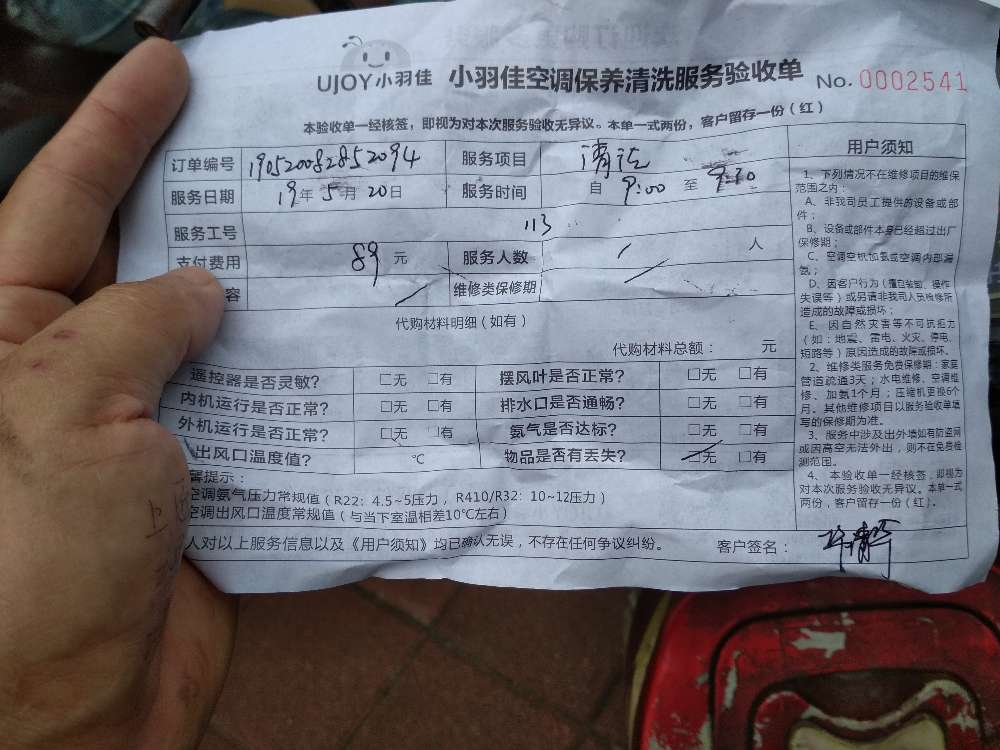 UJOY小羽佳 小羽佳空调保养清洗服务验收单 No. 0002541
本验收单一经核签，即视为对本次服务验收无异议。本单一式两份，客户留存一份（红）
订单编号 190520082852094 服务项目 清洗
服务日期 19年 5月 20日 服务时间 自 9:00 至 9:30
服务工号 113
支付费用 89 元 服务人数 1 人
容 维修类保修期
代购材料明细（如有）
代购材料总额： 元
遥控器是否灵敏? □无 □有 摆风叶是否正常? □无 □有
内机运行是否正常? □无 □有 排水口是否通畅? □无 □有
外机运行是否正常? □无 □有 氨气是否达标? □无 □有
出风口温度值? ℃ 物品是否有丢失? □无 □有
馨提示：
空调氨气压力常规值（R22：4.5~5压力，R410/R32：10~12压力）
空调出风口温度常规值（与当下室温相差10℃左右）
人对以上服务信息以及《用户须知》均已确认无误，不存在任何争议纠纷。 客户签名：
用户须知
1、下列情况不在维修项目的维保
范围之内：
A、非我司员工提供的设备或部
件；
B、设备或部件本身已经超过出厂
保修期；
C、空调空机加氨或空调内部漏
氨；
D、因客户行为（擅自装卸、操作
失误等）或另请非我司人员检修所
造成的故障或损坏；
E、因自然灾害等不可抗拒力
（如：地震、雷电、火灾、停电、
短路等）原因造成的故障或损坏。
2、维修类服务免费保修期：家庭
管道疏通3天；水电维修、空调维
修、加氨1个月；压缩机更换6个
月。其他维修项目以服务验收单填
写的保修期为准。
3、服务中涉及出外墙如有防盗网
或因高空无法外出，则不在免费检
测范围。
4、本验收单一经核签，即视为
对本次服务验收无异议。本单一式
两份，客户留存一份（红）。